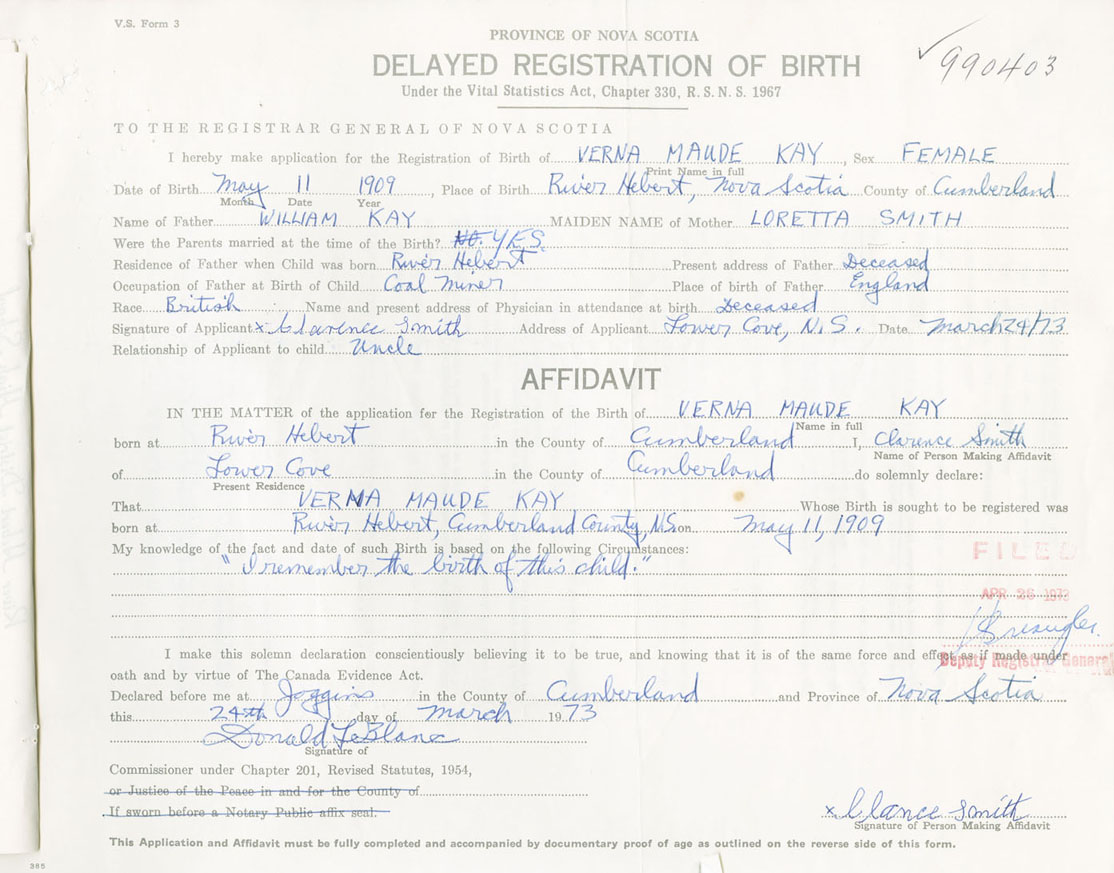 V.S. Form 3
PROVINCE OF NOVA SCOTIA
✓990403
DELAYED REGISTRATION OF BIRTH
Under the Vital Statistics Act, Chapter 330, R.S.N.S. 1967
TO THE REGISTRAR GENERAL OF NOVA SCOTIA
I hereby make application for the Registration of Birth of VERNA MAUDE KAY, Sex FEMALE
Print Name in full
Date of Birth May 11 1909, Place of Birth River Hebert, Nova Scotia County of Cumberland
Month Date Year
Name of Father WILLIAM KAY MAIDEN NAME of Mother LORETTA SMITH
Were the Parents married at the time of the Birth? NO. YES.
Residence of Father when Child was born River Hebert Present address of Father Deceased
Occupation of Father at Birth of Child Coal Miner Place of birth of Father England
Race British Name and present address of Physician in attendance at birth Deceased
Signature of Applicant x Clarence Smith Address of Applicant Lower Cove, N.S. Date March 24/73
Relationship of Applicant to child Uncle
AFFIDAVIT
IN THE MATTER of the application for the Registration of the Birth of VERNA MAUDE KAY
Name in full
born at River Hebert in the County of Cumberland I, Clarence Smith
Name of Person Making Affidavit
of Lower Cove in the County of Cumberland do solemnly declare:
Present Residence
That VERNA MAUDE KAY Whose Birth is sought to be registered was
born at River Hebert, Cumberland County, N.S. on May 11, 1909
My knowledge of the fact and date of such Birth is based on the following Circumstances:
"I remember the birth of this child."
FILED
APR 26 1973
Deputy Registrar General
I make this solemn declaration conscientiously believing it to be true, and knowing that it is of the same force and effect as if made under
oath and by virtue of The Canada Evidence Act.
Declared before me at Joggins in the County of Cumberland and Province of Nova Scotia
this 24th day of March 1973
Donald LeBlanc
Signature of
Commissioner under Chapter 201, Revised Statutes, 1954,
or Justice of the Peace in and for the County of
If sworn before a Notary Public affix seal.
x Clance Smith
Signature of Person Making Affidavit
This Application and Affidavit must be fully completed and accompanied by documentary proof of age as outlined on the reverse side of this form.
385